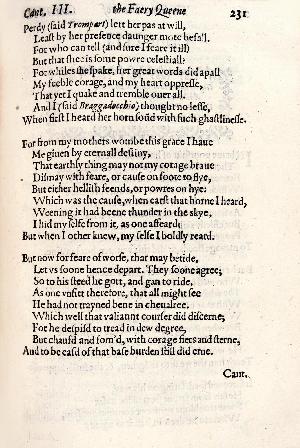 Cant. III. the Faery Queene 231
Perdy (said Trompart) lett her pas at will,
Least by her presence daunger mote befall.
For who can tell (and sure I feare it ill)
But that shee is some powre celestiall?
For whiles she spake, her great words did apall
My feeble corage, and my heart oppresse,
That yet I quake and tremble ouer all.
And I (said Braggadocchio) thought no lesse,
When first I heard her horn sound with such ghastlinesse.
For from my mothers wombe this grace I haue
Me giuen by eternall destiny,
That earthly thing may not my corage braue
Dismay with feare, or cause on foote to flye,
But either hellish feends, or powres on hye:
Which was the cause, when earst that horne I heard,
Weening it had beene thunder in the skye,
I hid my selfe from it, as one affeard;
But when I other knew, my selfe I boldly reard.
But now for feare of worse, that may betide,
Let vs soone hence depart. They soone agree;
So to his steed he gott, and gan to ride,
As one vnfitt therefore, that all might see
He had not trayned bene in cheualree.
Which well that valiaunt courser did discerne;
For he despisd to tread in dew degree,
But chaufd and fom'd, with corage fiers and sterne,
And to be easd of that base burden still did erne.
Cant.